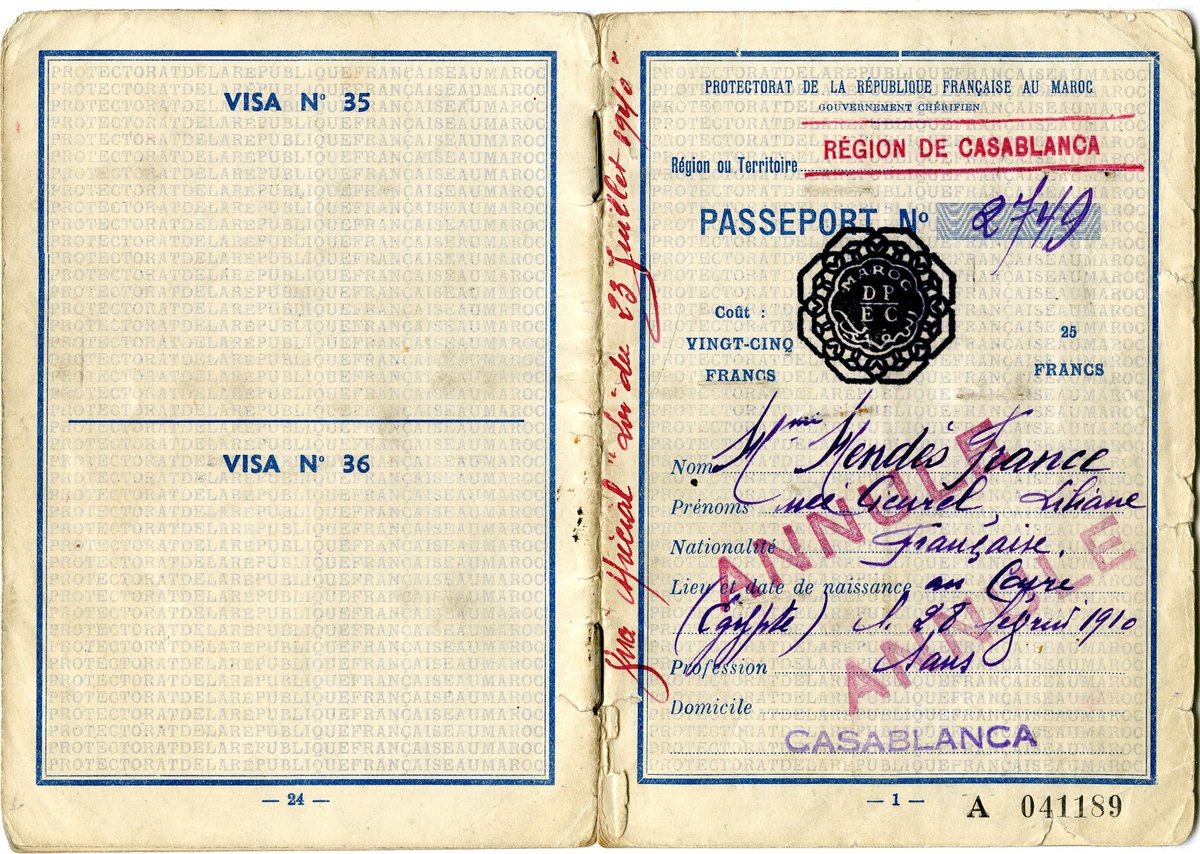 PROTECTORATDELAREPUBLIQUEFRANÇAISEAUMAROC
VISA N° 35
VISA N° 36
— 24 —
Spécial "Loi du 23 Juillet 1940"
PROTECTORAT DE LA RÉPUBLIQUE FRANÇAISE AU MAROC
GOUVERNEMENT CHÉRIFIEN
Région ou Territoire RÉGION DE CASABLANCA
PASSEPORT N° 2749
MAROC
DP
EC
Coût :
VINGT-CINQ
FRANCS
25
FRANCS
Nom Mme Mendès France
Prénoms née Cicurel, Liliane
Nationalité Française.
Lieu et date de naissance au Caire
(Egypte) le 28 février 1910
Profession Sans
Domicile
CASABLANCA
ANNULE
ANNULE
— 1 —
A 041189